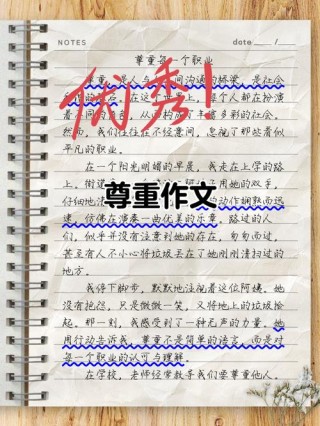 NOTES
date ___ /___
尊重每一个职业
尊重,是人与人之间沟通的桥梁,是社会
在这个世界上,每个人都在扮演
着不同的角色,从而构成了丰富多彩的社会。
然而,我们往往在不经意间,忽视了那些看似
平凡的职业。
在一个阳光明媚的早晨,我走在上学的路
上,街道 用她的双手,
仔细地清 动作娴熟而迅
速,仿佛在演奏一曲优美的乐章。路过的人
们,似乎并没有注意到她的存在,匆匆而过,
甚至有人不小心将垃圾丢在了她刚刚清扫过的
地方。
我停下脚步,默默地注视着这位阿姨。她
没有抱怨,只是微微一笑,又将地上的垃圾捡
起。那一刻,我感受到了一种无声的力量。她
用行动告诉我,尊重不是简单的语言,而是对
每一个职业的认可与理解。
在学校,老师经常教导我们要尊重他人。
优秀!
尊重作文